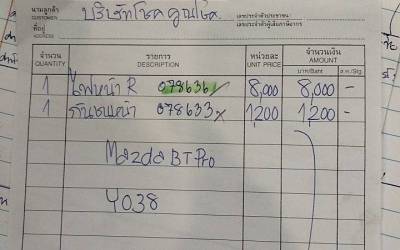 นามลูกค้า บริษัทโชคคูณโชค เลขประจำตัวประชาชน
ที่อยู่ เลขประจำตัวผู้เสียภาษีอากร
ADDRESS
จำนวน รายการ หน่วยละ จำนวนเงิน
QUANTITY DESCRIPTION UNIT PRICE AMOUNT
บาท/Baht ส.ต./Stg.
1 ไฟหน้า R 078636 8,000 8,000 -
1 กันชนหน้า 078633 x 1,200 1,200 -
Mazda BT Pro
4038